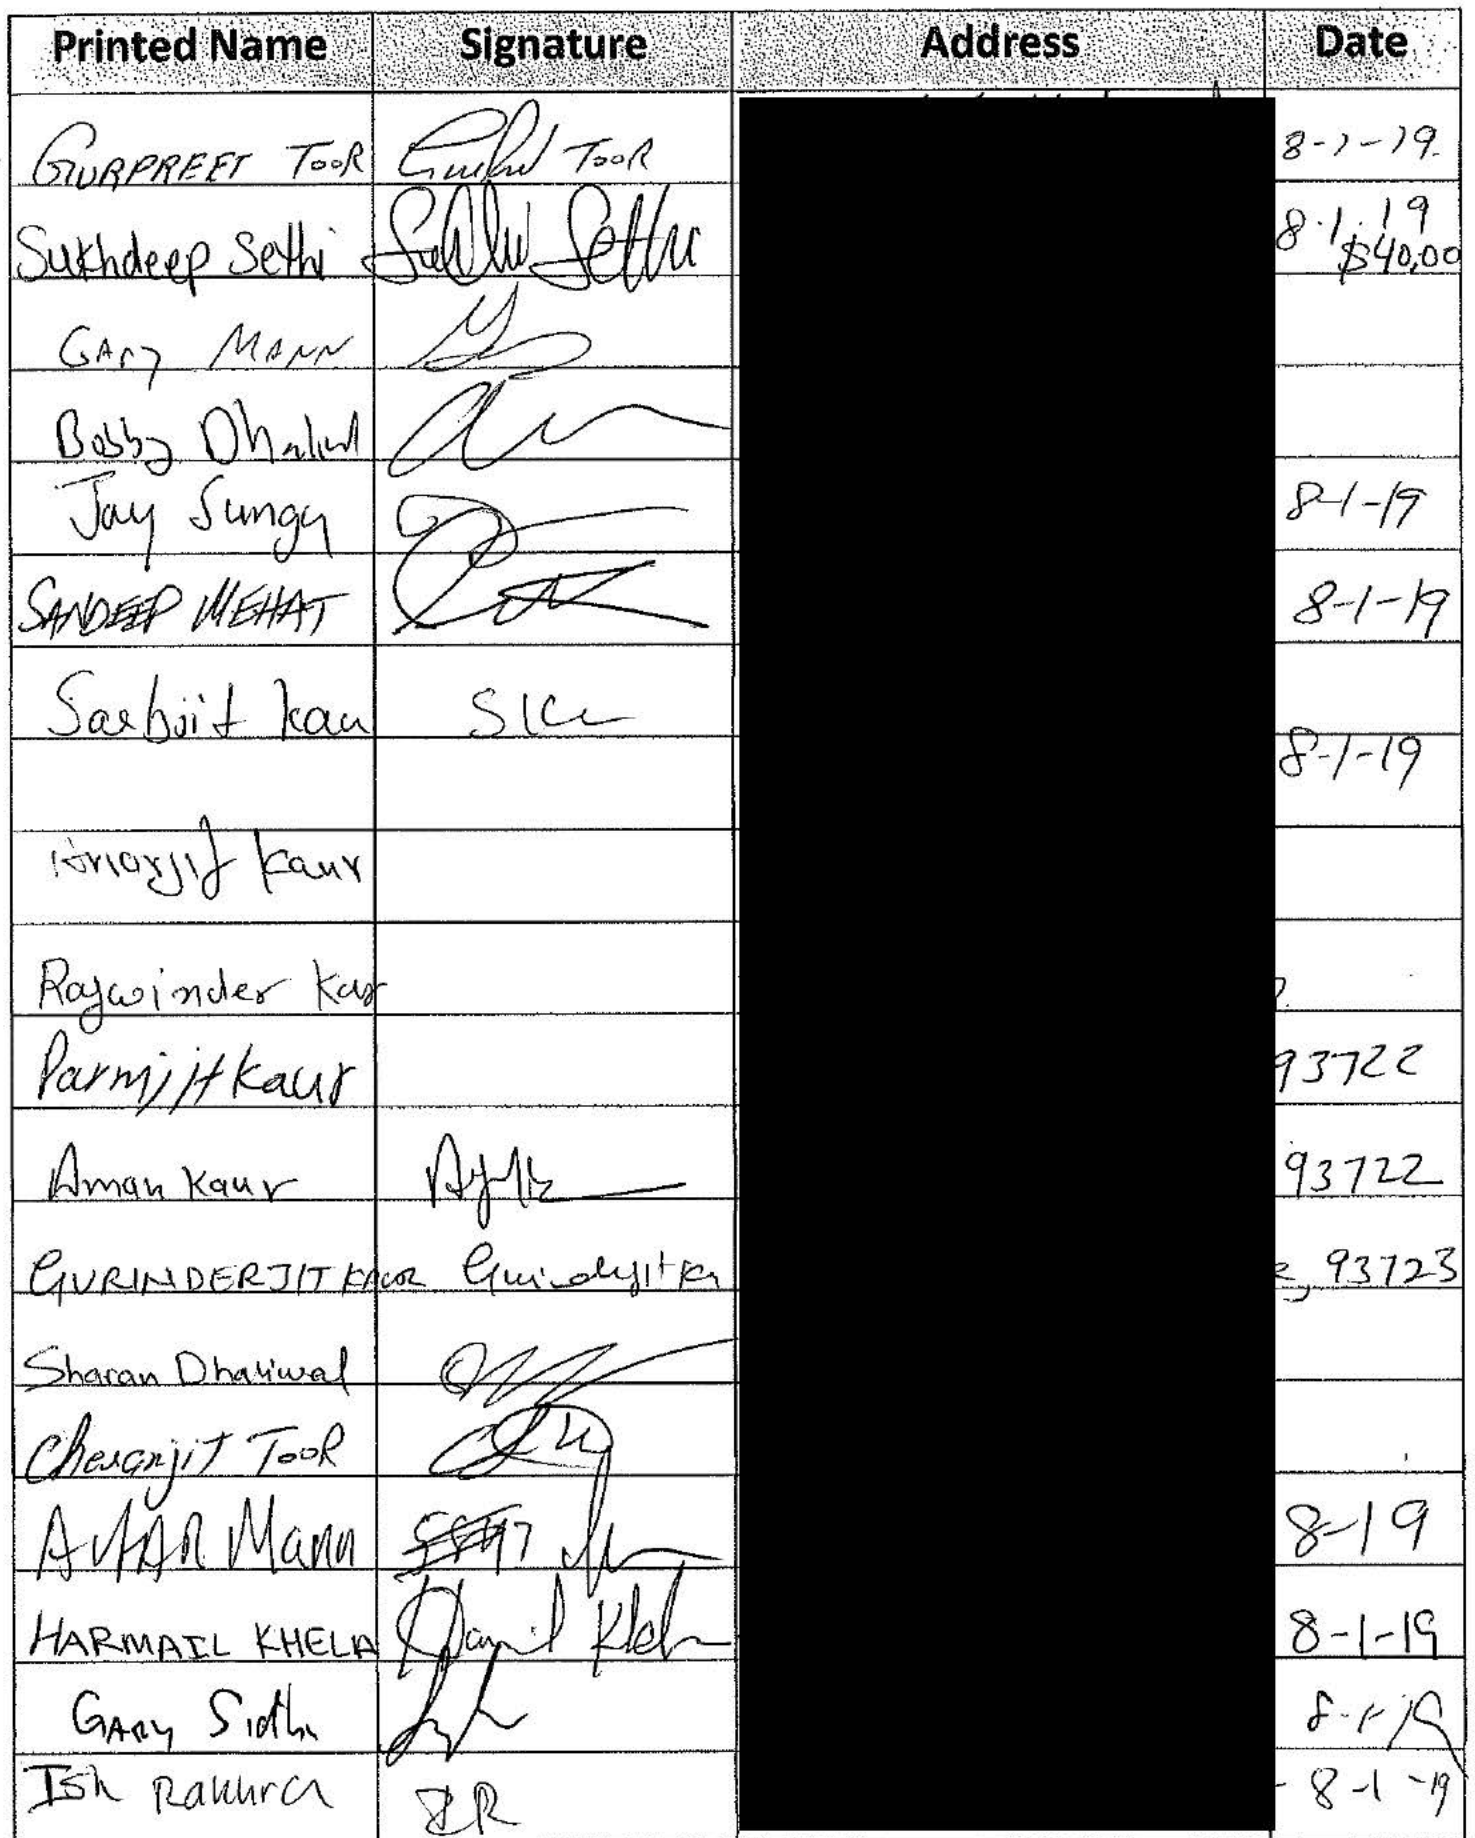 Printed Name Signature Address Date
GURPREET TOOR TOOR 8-1-19.
Sukhdeep Sethi Sethi 8.1.19
$40.00
GARY MANN
Bobby Dhaliwal
Jay Sungu 8-1-19
SANDEEP MEHAT 8-1-19
Sarbjit kau
8-1-19
kaur
Rajwinder Kar
Parmjit kaur 93722
Aman Kaur 93722
GURINDERJIT KAUR 93723
Sharan Dhaliwal
TOOR
AVTAR Mann 8-19
HARMAIL KHELA 8-1-19
GARY Sidhu 8-1-19
Ish Rakhra IR - 8-1-19